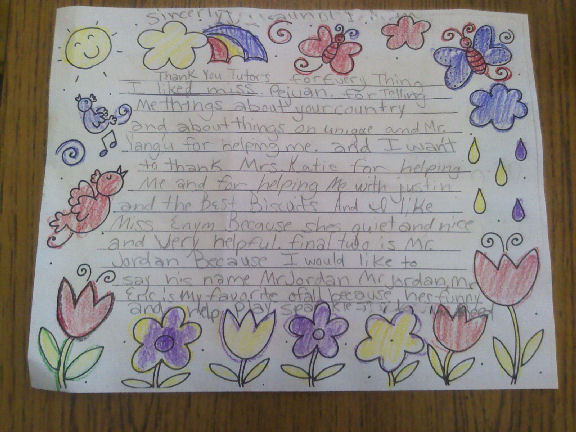 Sincerly,
Thank You Tutors for Every Thing
I liked miss. Pejuan. for Telling
Me things about your country
and about things on unique and Mr.
Yangu for helping me. and I want
to thank Mrs. Katie for helping
Me and for helping Me with justin
and the Best Biscuits And I like
Miss Enym Because shes quiet and nice
and very helpful. final two is Mr.
Jordan Because I would like to
say his name Mr Jordan Mr jordan, Mr
Eric is My favorite of all because her funny
and help